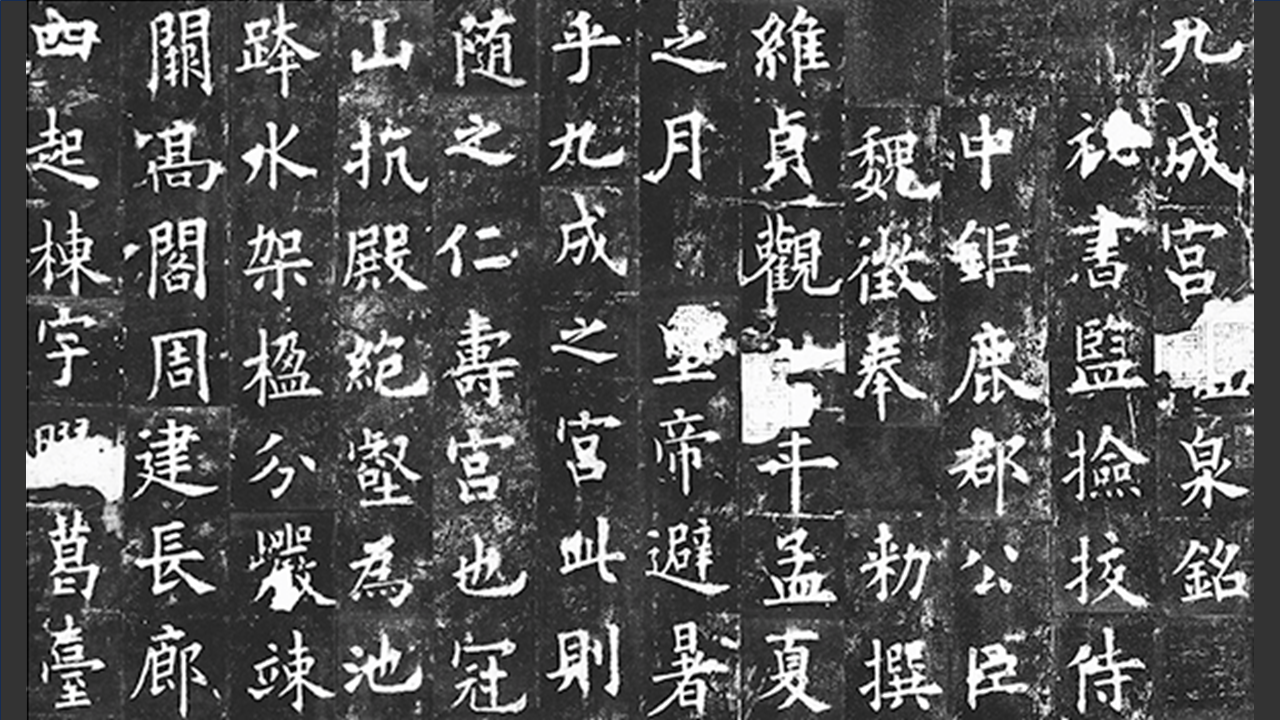 九成宮泉銘
祕書監撿挍侍
中鉅鹿郡公臣
魏徵奉 勑撰
維貞觀年孟夏
之月 皇帝避暑
乎九成之宮此則
随之仁壽宮也冠
山抗殿絶壑為池
跨水架楹分巖竦
闕高閣周建長廊
四起棟宇葛臺